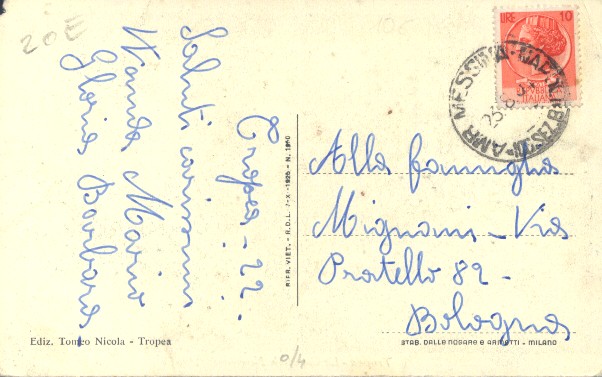 20E
Tropea - 22.
Saluti carissimi
Wanda Mario
Gloria Barbara
Alla famiglia
Mignani - Via
Pratello 82 -
Bologna
LIRE 10
MESSINA
AMB
25.8
RIPR. VIET. - R.D.L. 7-X-1926 - N.
Ediz. Tomeo Nicola - Tropea
STAB. DALLE NOGARE e ARMETTI - MILANO
0/4